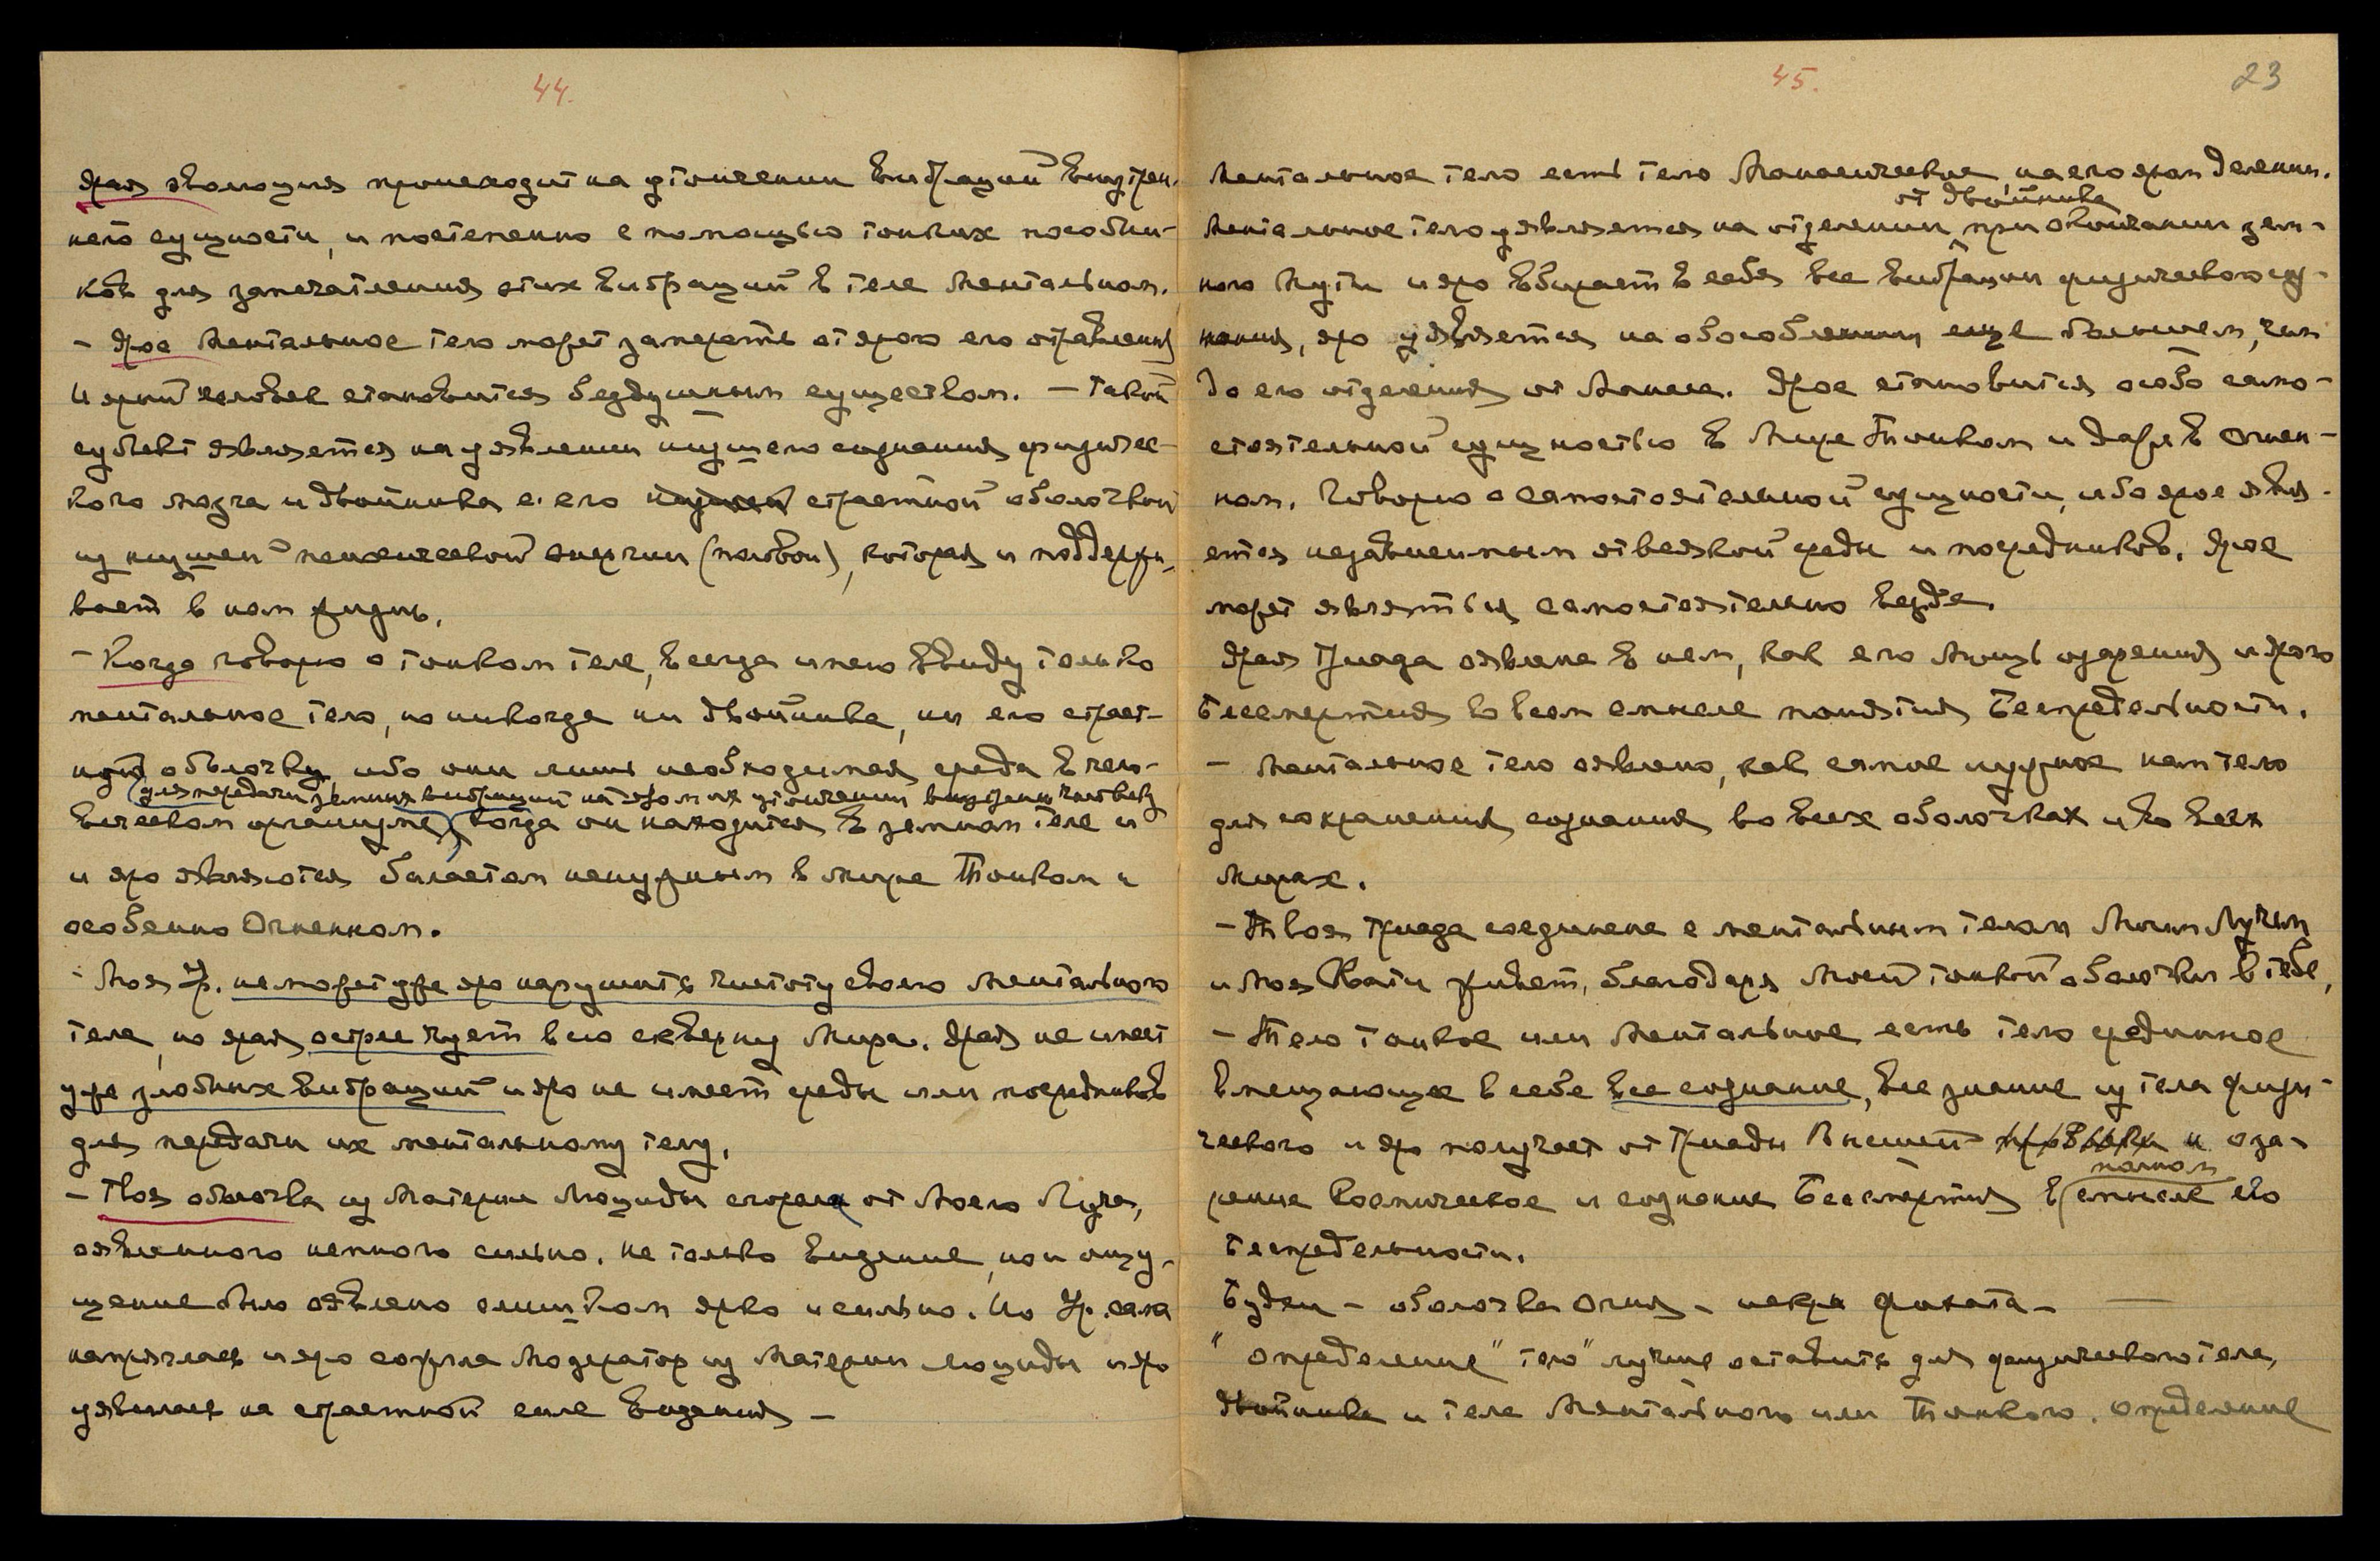 44.
Ярая эволюция происходит на утончении вибраций внутрен-
ней сущности, и постепенно с помощью тонких пособни-
ков для запечатления этих вибраций в теле ментальном.
- Ярое Ментальное тело может замереть от ярого его отравления
и ярый человек становится бездушным существом. - Такой
субъект является на уявлении низшего сознания физичес-
кого мозга и двойника с его страстной оболочкой
из низшей психической энергии (половой), которая и поддержи-
вает в нем жизнь.
- Когда говорю о тонком теле, всегда имею ввиду только
ментальное тело, но никогда ни двойника, ни его страст-
ную оболочку, ибо они лишь необходимая среда в чело-
для передачи земных вибраций на яром их утончении внутрен. человек
веческом организме, когда он находится в земном теле и
и яро являются баластом ненужным в мире Тонком и
особенно Огненном.
- Моя Ур. не может уже яро нарушить чистоту своего Ментального
тела, но ярая острее чует всю скверну Мира. Ярая не имеет
уже злобных вибраций и яро не имеет среды или посредников
для передачи их ментальному телу.
- Твоя оболочка из Материи Люциды сгорела от Моего Луча,
оявленного немного сильно. Не только видение, но и ощу-
щение было оявлено слишком ярко и сильно. Но Ур. сама
напряглась и яро сожгла Модератор из Материи Люциды и яро
уявилась на страстной силе видения -
45.
23
Ментальное тело есть тело Манасическое, на его яром делении.
от двойника
Ментальное тело уявляется на отделении при окончании зем-
ного Пути и яро вбирает в себя все вибрации физического соз-
нания, яро уявляется на обособлении еще большем, чем
до его отделения от Манаса. Ярое становится особо само-
стоятельной сущностью в Мире Тонком и даже в Огнен-
ном. Говорю о самостоятельной сущности, ибо ярое явля-
ется независимым от всякой среды и посредников. Ярое
может являться самостоятельно везде.
Ярая Триада оявлена в нем, как его Мощь озарения и ярого
Бессмертия во всем смысле понятия Беспредельности.
- Ментальное тело оявлено, как самое нужное нам тело
для сохранения сознания во всех оболочках и во всех
Мирах.
- Твоя Триада соединена с ментальным телом Моим Лучом
и Моя Свати живет, благодаря Моей тонкой оболочки в тебе,
- Тело тонкое или Ментальное есть тело срединное
вмещающее в себе все сознание, все знание из тела физи-
ческого и яро получает от Триады Высшей и оза-
полном
рение Космическое и сознание Бессмертия в смысле его
Беспредельности.
Будхи - оболочка Огня -
"Определение" "тело" лучше оставить для физического тела,
двойника и тела Ментального или Тонкого. Определение